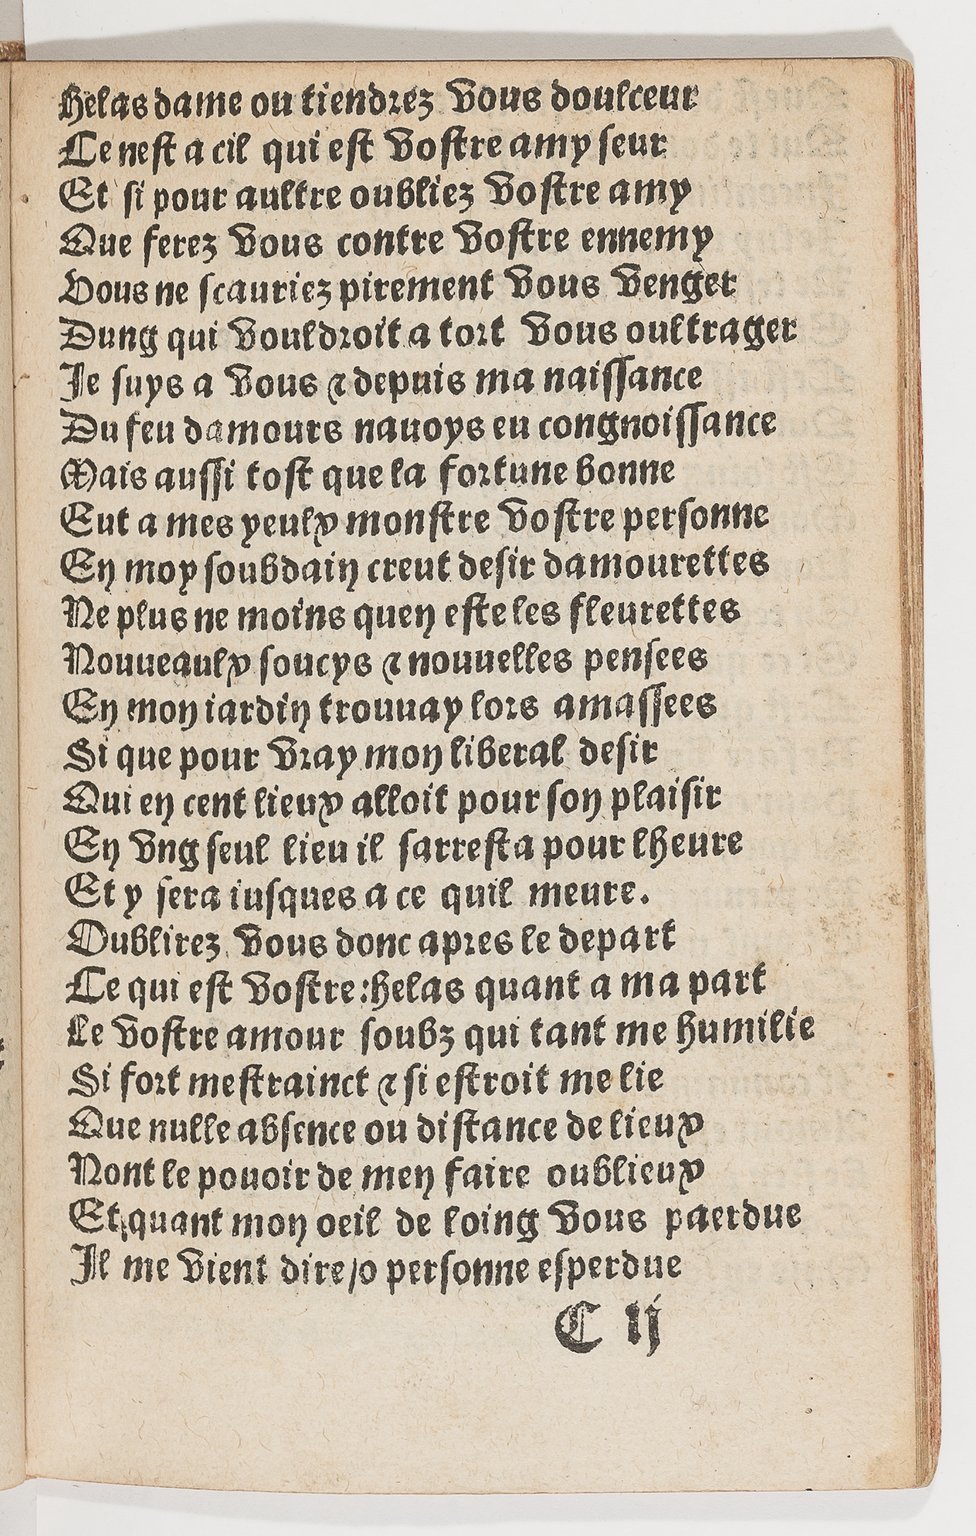 Helas dame ou tiendrez vous doulceur
Ce nest a cil qui est vostre amy seur
Et si pour aultre oubliez vostre amy
Que ferez vous contre vostre ennemy
Vous ne scauriez pirement vous venger
Dung qui vouldroit a tort vous oultrager
Je suys a vous ⁊ depuis ma naissance
Du feu damours nauoys eu congnoissance
Mais aussi tost que la fortune bonne
Eut a mes yeulx monstre vostre personne
En moy soubdain creut desir damourettes
Ne plus ne moins quen este les fleurettes
Nouueaulx soucys ⁊ nouuelles pensees
En mon iardin trouuay lors amassees
Si que pour vray mon liberal desir
Qui en cent lieux alloit pour son plaisir
En vng seul lieu il sarresta pour lheure
Et y sera iusques a ce quil meure.
Oublirez vous donc apres le depart
Ce qui est vostre: helas quant a ma part
Le vostre amour soubz qui tant me humilie
Si fort mestrainct ⁊ si estroit me lie
Que nulle absence ou distance de lieux
Nont le pouoir de men faire oublieux
Et quant mon oeil de loing vous paerdue
Il me vient dire/o personne esperdue
C ij